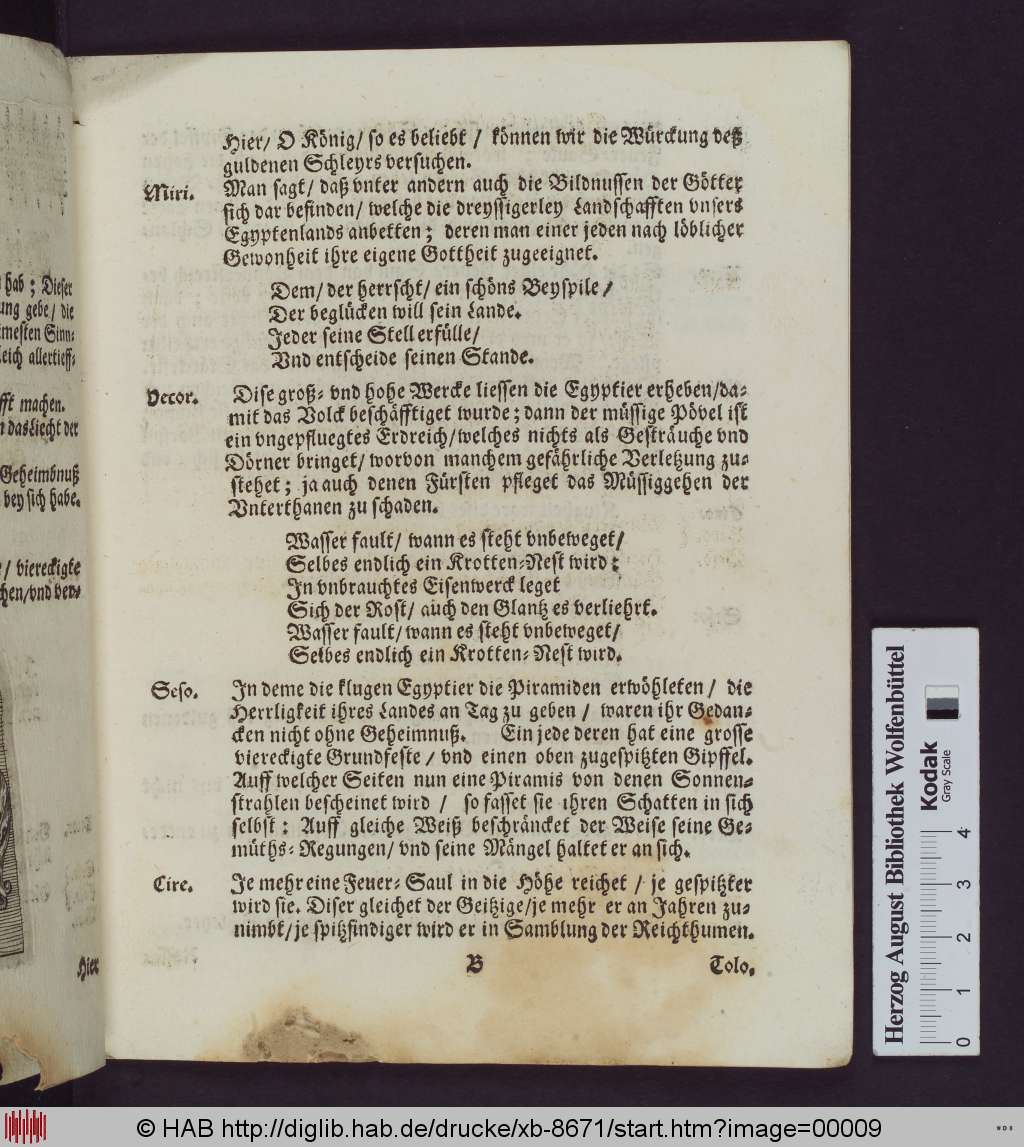 hab ; Dieser
ung gebe / die
mesten Sinn⸗
leich allertieff⸗
fft machen.
n das Liecht der
Geheimbnuß
bey sich habe.
/ viereckigte
chen/vnd ver⸗
Hier
Hier/ O König/ so es beliebt / können wir die Würckung deß
guldenen Schleyrs versuchen.
Miri. Man sagt/ daß vnter andern auch die Bildnussen der Götter
sich dar befinden/ welche die dreyssigerley Landschafften vnsers
Egyptenlands anbetten; deren man einer jeden nach löblicher
Gewonheit ihre eigene Gottheit zugeeignet.
Dem/ der herrscht/ ein schöns Beyspile /
Der beglücken will sein Lande.
Jeder seine Stell erfülle/
Vnd entscheide seinen Stande.
Decor. Dise groß⸗ vnd hohe Wercke liessen die Egyptier erheben/da⸗
mit das Volck beschäfftiget wurde; dann der müssige Pövel ist
ein vngepfluegtes Erdreich/welches nichts als Gesträuche vnd
Dörner bringet/ worvon manchem gefährliche Verletzung zu⸗
stehet; ja auch denen Fürsten pfleget das Müssiggehen der
Vnterthanen zu schaden.
Wasser fault/ wann es steht vnbeweget/
Selbes endlich ein Krotten⸗Nest wird;
In vnbrauchtes Eisenwerck leget
Sich der Rost/ auch den Glantz es verliehrt.
Wasser fault/ wann es steht vnbeweget/
Selbes endlich ein Krotten⸗Nest wird.
Seso. In deme die klugen Egyptier die Piramiden erwöhleten / die
Herrligkeit ihres Landes an Tag zu geben / waren ihr Gedan⸗
cken nicht ohne Geheimnuß. Ein jede deren hat eine grosse
viereckigte Grundfeste / vnd einen oben zugespitzten Gipffel.
Auff welcher Seiten nun eine Piramis von denen Sonnen⸗
strahlen bescheinet wird / so fasset sie ihren Schatten in sich
selbst: Auff gleiche Weiß beschräncket der Weise seine Ge⸗
müths⸗Regungen/ vnd seine Mängel haltet er an sich.
Cire. Je mehr eine Feuer⸗Saul in die Höhe reichet / je gespitzter
wird sie. Diser gleichet der Geitzige/je mehr er an Jahren zu⸗
nimbt/je spitzfindiger wird er in Samblung der Reichthumen.
B Tolo.
Herzog August Bibliothek Wolfenbüttel
Kodak
Gray Scale
0 1 2 3 4
© HAB http://diglib.hab.de/drucke/xb-8671/start.htm?image=00009